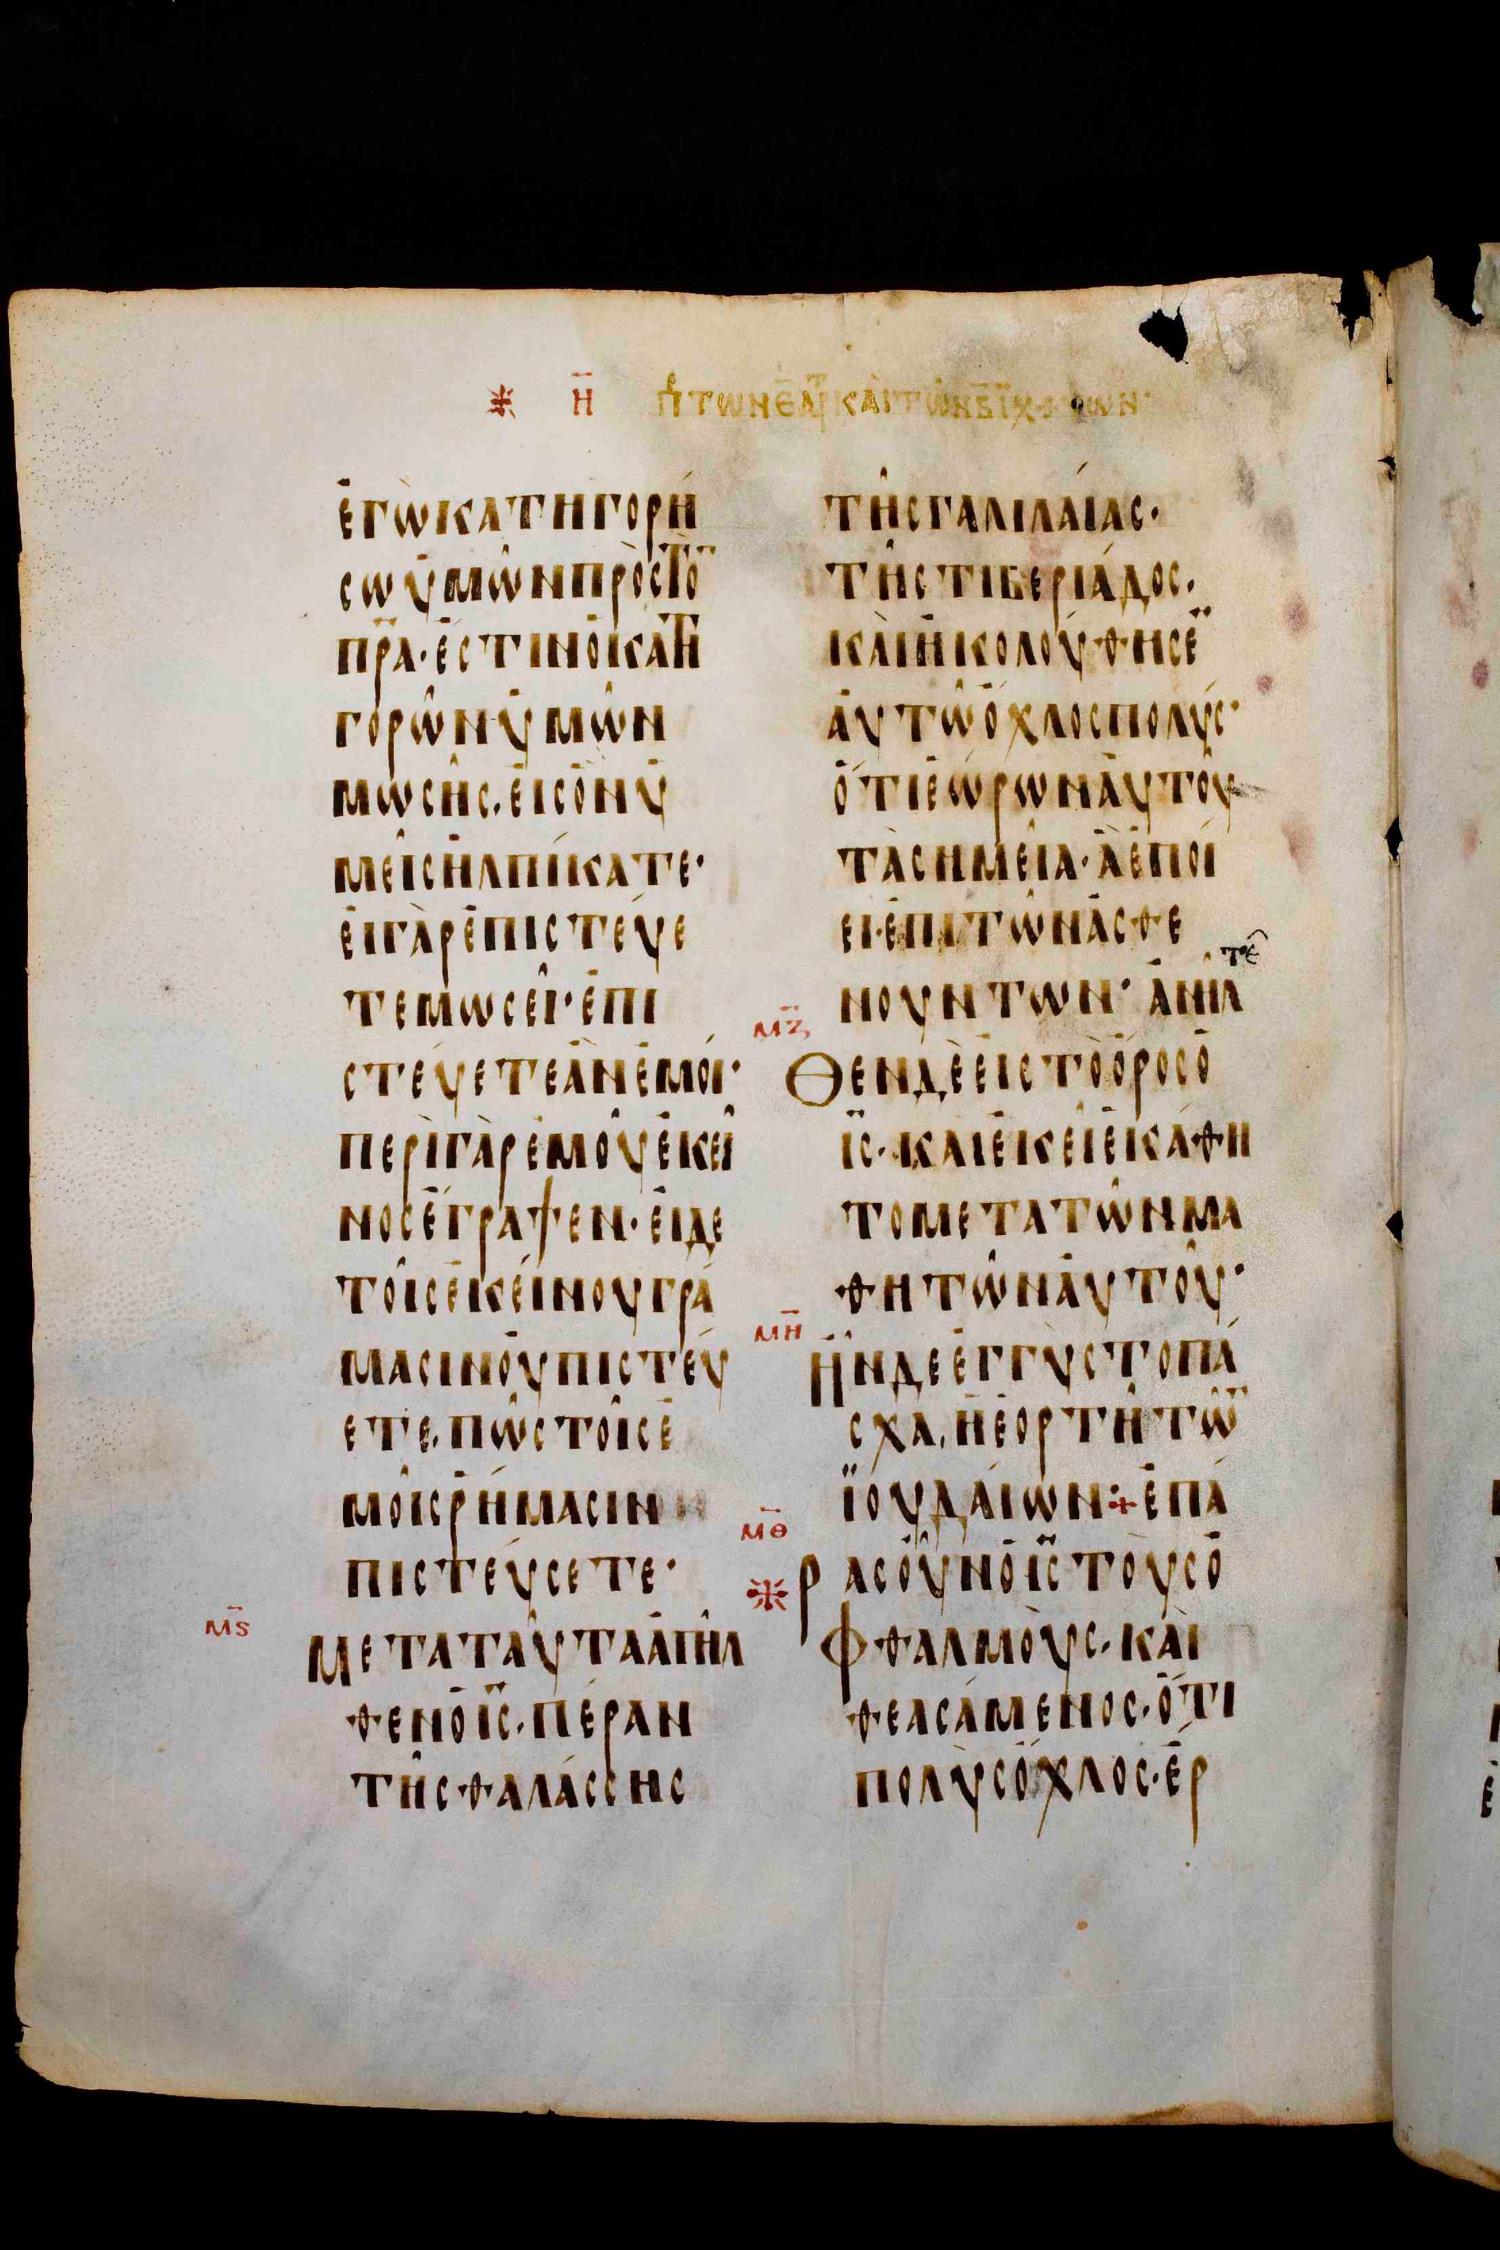 Η Π ΤΩΝ Ε ΑΡ ΚΑΙ ΤΩΝ Β ΙΧΘΥΩΝ
ἐγὼ κατηγορή
σω ὑμῶν πρὸς τὸ̅
π̅ρ̅α· ἔστιν ὁ κατη
γορῶν ὑμῶν
μωσῆς· εἰς ὃν ὑ
μεῖς ἠλπίκατε·
εἰ γὰρ ἐπιστεύε
τε μωσεῖ· ἐπι
στεύετε ἂν ἐμοί·
περὶ γὰρ ἐμοῦ ἐκεῖ
νος ἔγραψεν· εἰ δε
τοῖς ἐκείνου γρά
μασιν οὐ πιστεύ
ετε, πῶς τοῖς ἐ
μοῖς ῥήμασιν
πιστεύσετε·
μ̅ς̅
Μετα ταῦτα ἀπῆλ
θεν ὁ ι̅ς̅· πέραν
τῆς θαλάσσης
τῆς γαλιλαίας·
τῆς τιβεριάδος·
καὶ ἠκολούθησε̈
αὐτῶ ὄχλος πολύς·
ὅτι ἑώρων αὐτοῦ
τὰ σημεῖα· ἃ ἐποί
ει· ἐπὶ τῶν ἀσθε
νούντων· ἀνῆλ
μ̅ζ̅
Θεν δὲ εἰς τὸ ὄρος ὁ
ι̅ς̅· καὶ ἐκεῖ ἐκάθη
το μετα τῶν μα
θητῶν αὐτοῦ·
μ̅η̅
Ἦν δε ἐγγὺς το πά
σχα, ἡ ἑορτὴ τῶ̅
ϊουδαίων ⁘ ἐπά
μ̅θ̅
ρας οὖν ὁ ι̅ς̅ τοὺς ὀ
φθαλμοὺς· καὶ
θεασάμενος· ὅτι
πολὺς ὄχλος· ἔρ